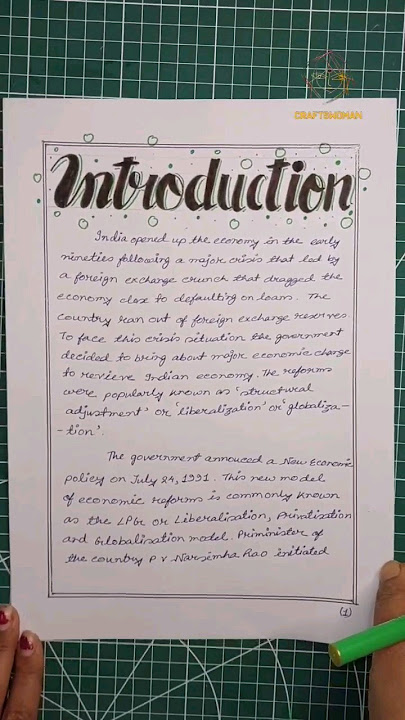 CRAFTSWOMAN
Introduction
India opened up the economy in the early
nineties following a major crisis that led by
a foreign exchange crunch that dragged the
economy close to defaulting on loans. The
country ran out of foreign exchange reserves.
To face this crisis situation the government
decided to bring about major economic change
to revieve Indian economy. The reforms
were popularly known as 'structural
adjustment' or 'liberalization' or 'globaliza-
-tion'.
The government annouced a New Economic
policy on July 24, 1991. This new model
of economic reforms is commonly known
as the LPG or Liberalisation, Privatisation
and Globalisation model. Priminister of
the country P V Narsimha Rao initiated
(1)